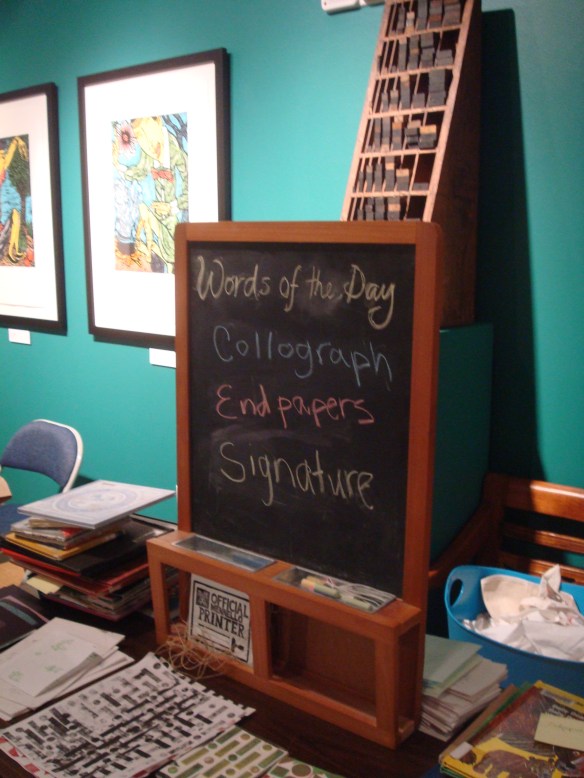 Words of the Day
Collograph
Endpapers
Signature
OFFICIAL
PRINTER